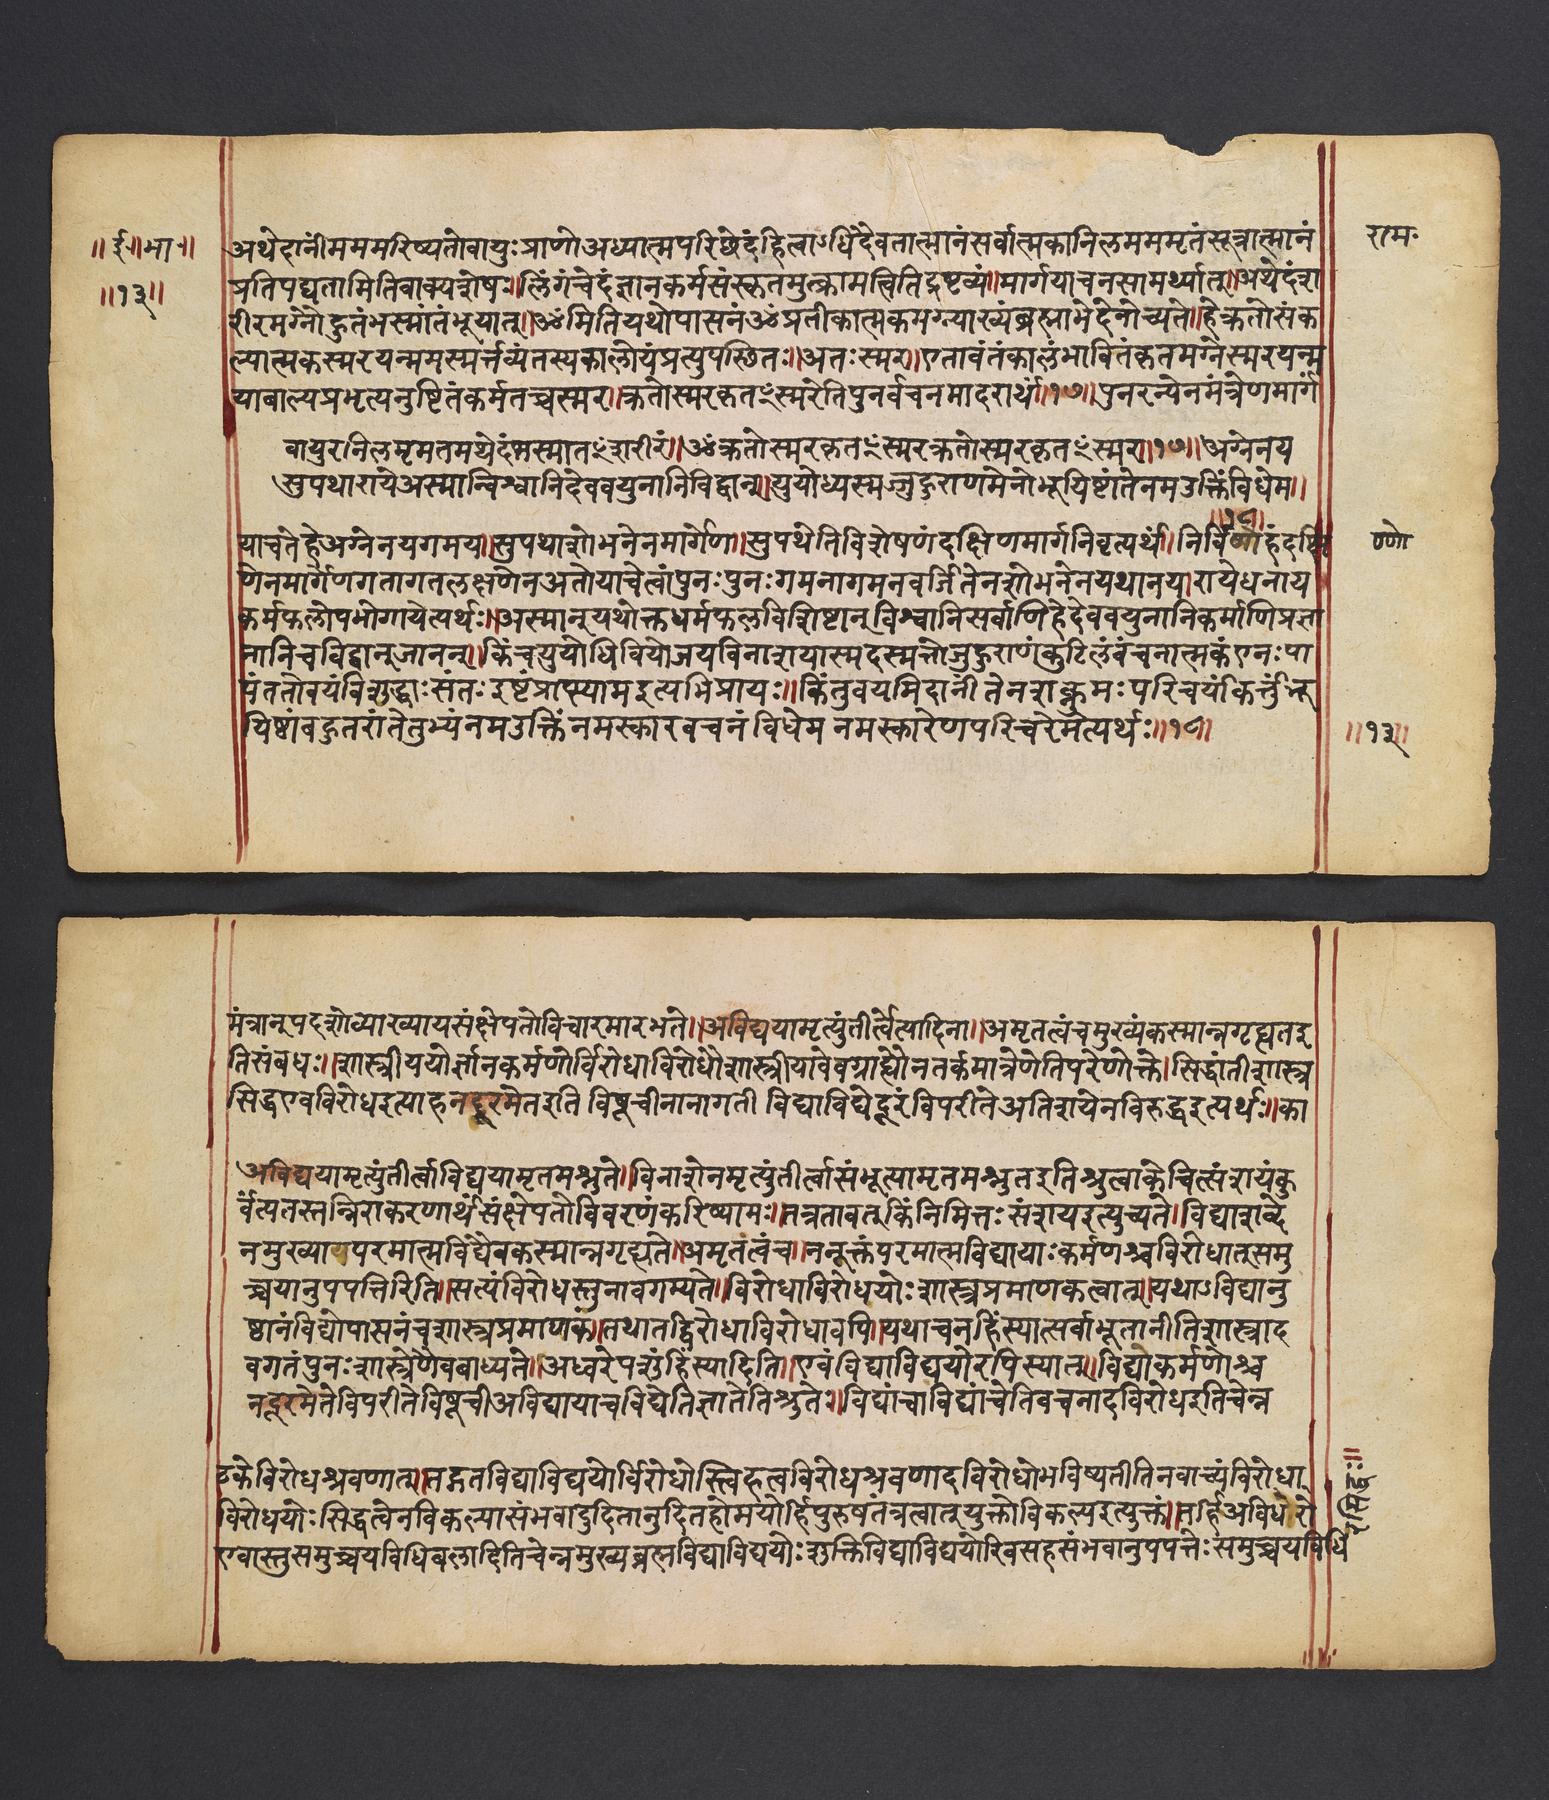 ॥ई॥भा॥
॥१३॥
रामः
अथेदानींमममरिष्यतोवायुःप्राणोअध्यात्मपरिछेदंहित्वाऽधिदैवतात्मानंसर्वात्मकानिलमममृतंसूत्रात्मानं
प्रतिपद्यतामितिवाक्यशेषः॥लिंगंचेदंज्ञानकर्मसंस्कृतमुत्क्रामत्वितिद्रष्टव्यं॥मार्गयाचनसामर्थ्यात्॥अथेदंश
रीरमग्नौहुतंभस्मांतंभूयात्॥ॐमितियथोपासनंॐप्रतीकात्मकमग्न्याख्यंब्रह्माभेदेनोच्यते॥हेक्रतोसंक
ल्पात्मकस्मरयन्ममस्मर्त्तव्यंतस्यकालोयंप्रत्युपस्थितः॥अतःस्मर॥एतावंतंकालंभावितंकृतमग्नेस्मरयन्म
याबाल्यप्रभृत्यनुष्टितंकर्मतच्चस्मर॥क्रतोस्मरकृतꣳस्मरेतिपुनर्वचनमादरार्थं॥१७॥पुनरन्येनमंत्रेणमार्गं
वायुरनिलमृमतमथेदंभस्मातꣳशरीरं॥ॐक्रतोस्मरकृतꣳस्मरक्रतोस्मरकृतꣳस्मर॥१७॥अग्नेनय
सुपथारायेअस्मान्विश्वानिदेववयुनानिविद्वान्॥युयोध्यस्मज्जुहुराणमेनोभूयिष्टांतेनमउक्तिंविधेम॥
॥१८॥
याचतेहेअग्नेनयगमय॥सुपथाशोभनेनमार्गेण॥सुपथेतिविशेषणंदक्षिणमार्गनिवृत्यर्थं॥निर्विण्णोहंदक्षि
ण्णो
णेनमार्गेणगतागतलक्षणेनअतोयाचेत्वांपुनःपुनःगमनागमनवर्जितेनशोभनेनयथानय॥रायेधनाय
कर्मफलोपभोगायेत्यर्थः॥अस्मान्यथोक्तधर्मफलविशिष्टान्विश्वानिसर्वाणिहेदेववयुनानिकर्माणिप्रज्ञा
नानिचविद्वान्जानन्॥किंचयुयोधिवियोजयविनाशयास्मदस्मत्तोजुहुराणंकुटिलंवंचनात्मकंएनःपा
पंततोवयंविशुद्धाःसंतःइष्टंप्राप्स्यामइत्यभिप्रायः॥किंतुवयमिदानीं तेनशक्नुमःपरिचर्यांकर्त्तुंभू
यिष्ठांबहुतरांतेतुभ्यंनमउक्तिंनमस्कारवचनंविधेम नमस्कारेणपरिचरेमेत्यर्थः॥१८॥
॥१३॥
मंत्रान्पदशोव्याख्यायसंक्षेपतोविचारमारभते॥अविद्ययामृत्युंतीर्त्वेत्यादिना॥अमृतत्वंचमुख्यंकस्मान्नगृह्यतइ
तिसंबंधः॥शास्त्रीययोर्ज्ञानकर्मणोर्विरोधाविरोधौशास्त्रीयावेवग्राह्यौनतर्कमात्रेणेतिपरेणोक्ते।सिद्धांतीशास्त्र
सिद्धएवविरोधइत्याहनदूरमेतइति विषूचीनानागती विद्याविद्येदूरंविपरीतेअतिशयेनविरुद्धइत्यर्थः॥का
अविद्ययामृत्युंतीर्त्वाविद्ययामृतमश्नुते॥विनाशेनमृत्युंतीर्त्वासंभूत्यामृतमश्नुतइतिश्रुत्वाकेचित्संशयंकु
र्वंत्यतस्तन्निराकरणार्थंसंक्षेपतोविवरणंकरिष्यामः॥तत्रतावत्किंनिमित्तःसंशयइत्युच्यते॥विद्याशब्दे
नमुख्यापरमात्मविद्यैवकस्मान्नगृह्यते॥अमृतत्वंच॥ननूक्तंपरमात्मविद्यायाःकर्मणश्चविरोधात्समु
च्चयानुपपत्तिरिति॥सत्यंविरोधस्तुनावगम्यते॥विरोधाविरोधयोःशास्त्रप्रमाणकत्वात्॥यथाऽविद्यानु
ष्ठानंविद्योपासनंचशास्त्रप्रमाणकं॥तथातद्विरोधाविरोधावपि॥यथाचनहिंस्यात्सर्वाभूतानीतिशास्त्राद
वगतंपुनःशास्त्रेणैवबाध्यते॥अध्वरेपशुंहिंस्यादिति॥एवंविद्याविद्ययोरपिस्यात्॥विद्याकर्मणोश्च
नदूरमेतेविपरीतेविषूचीअविद्यायाचविद्येतिज्ञातेतिश्रुतेः॥विद्यांचाविद्यांचेतिवचनादविरोधइतिचेन्न
ठकेविरोधश्रवणात्॥तद्गतविद्याविद्ययोर्विरोधोस्त्विहत्वविरोधश्रवणादविरोधोभविष्यतीतिनवाच्यंविरोधा
विरोधयोःसिद्धत्वेनविकल्पासंभवादुदितानुदितहोमयोर्हिपुरुषतंत्रत्वात्युक्तोविकल्पइत्युक्तं॥तर्हिअविधरो
एवास्तुसमुच्चयविधिबलादितिचेन्नमुख्यब्रह्मविद्याविद्ययोःशुक्तिविद्याविद्ययोरिवसहसंभवानुपपत्तेःसमुच्चयविधि